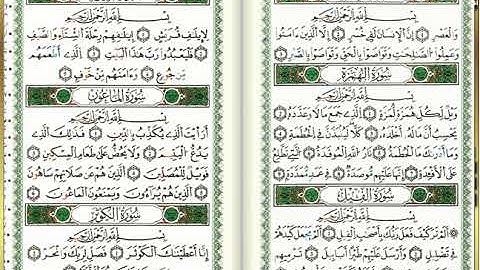 بِسْمِ اللَّهِ الرَّحْمَٰنِ الرَّحِيمِ
وَالْعَصْرِ ١ إِنَّ الْإِنسَٰنَ لَفِي خُسْرٍ ٢ إِلَّا الَّذِينَ ءَامَنُوا
وَعَمِلُوا الصَّٰلِحَٰتِ وَتَوَاصَوْا بِالْحَقِّ وَتَوَاصَوْا بِالصَّبْرِ ٣
سُورَةُ الْهُمَزَةِ
بِسْمِ اللَّهِ الرَّحْمَٰنِ الرَّحِيمِ
وَيْلٌ لِّكُلِّ هُمَزَةٍ لُّمَزَةٍ ١ الَّذِي جَمَعَ مَالًا وَعَدَّدَهُ ٢
يَحْسَبُ أَنَّ مَالَهُ أَخْلَدَهُ ٣ كَلَّا لَيُنبَذَنَّ فِي الْحُطَمَةِ ٤
وَمَا أَدْرَىٰكَ مَا الْحُطَمَةُ ٥ نَارُ اللَّهِ الْمُوقَدَةُ ٦ الَّتِي تَطَّلِعُ
عَلَى الْأَفْـِٔدَةِ ٧ إِنَّهَا عَلَيْهِم مُّؤْصَدَةٌ ٨ فِي عَمَدٍ مُّمَدَّدَةٍ ٩
سُورَةُ الْفِيلِ
بِسْمِ اللَّهِ الرَّحْمَٰنِ الرَّحِيمِ
أَلَمْ تَرَ كَيْفَ فَعَلَ رَبُّكَ بِأَصْحَٰبِ الْفِيلِ ١ أَلَمْ يَجْعَلْ كَيْدَهُمْ
فِي تَضْلِيلٍ ٢ وَأَرْسَلَ عَلَيْهِمْ طَيْرًا أَبَابِيلَ ٣ تَرْمِيهِم
بِسْمِ اللَّهِ الرَّحْمَٰنِ الرَّحِيمِ
لِإِيلَٰفِ قُرَيْشٍ ١ إِۦلَٰفِهِمْ رِحْلَةَ الشِّتَاءِ وَالصَّيْفِ
٢ فَلْيَعْبُدُوا رَبَّ هَٰذَا الْبَيْتِ ٣ الَّذِي أَطْعَمَهُم
مِّن جُوعٍ وَءَامَنَهُم مِّنْ خَوْفٍ ٤
سُورَةُ الْمَاعُونِ
بِسْمِ اللَّهِ الرَّحْمَٰنِ الرَّحِيمِ
أَرَءَيْتَ الَّذِي يُكَذِّبُ بِالدِّينِ ١ فَذَٰلِكَ الَّذِي
يَدُعُّ الْيَتِيمَ ٢ وَلَا يَحُضُّ عَلَىٰ طَعَامِ الْمِسْكِينِ ٣
فَوَيْلٌ لِّلْمُصَلِّينَ ٤ الَّذِينَ هُمْ عَن صَلَاتِهِمْ سَاهُونَ
٥ الَّذِينَ هُمْ يُرَاءُونَ ٦ وَيَمْنَعُونَ الْمَاعُونَ ٧
سُورَةُ الْكَوْثَرِ
بِسْمِ اللَّهِ الرَّحْمَٰنِ الرَّحِيمِ
إِنَّا أَعْطَيْنَٰكَ الْكَوْثَرَ ١ فَصَلِّ لِرَبِّكَ وَانْحَرْ ٢